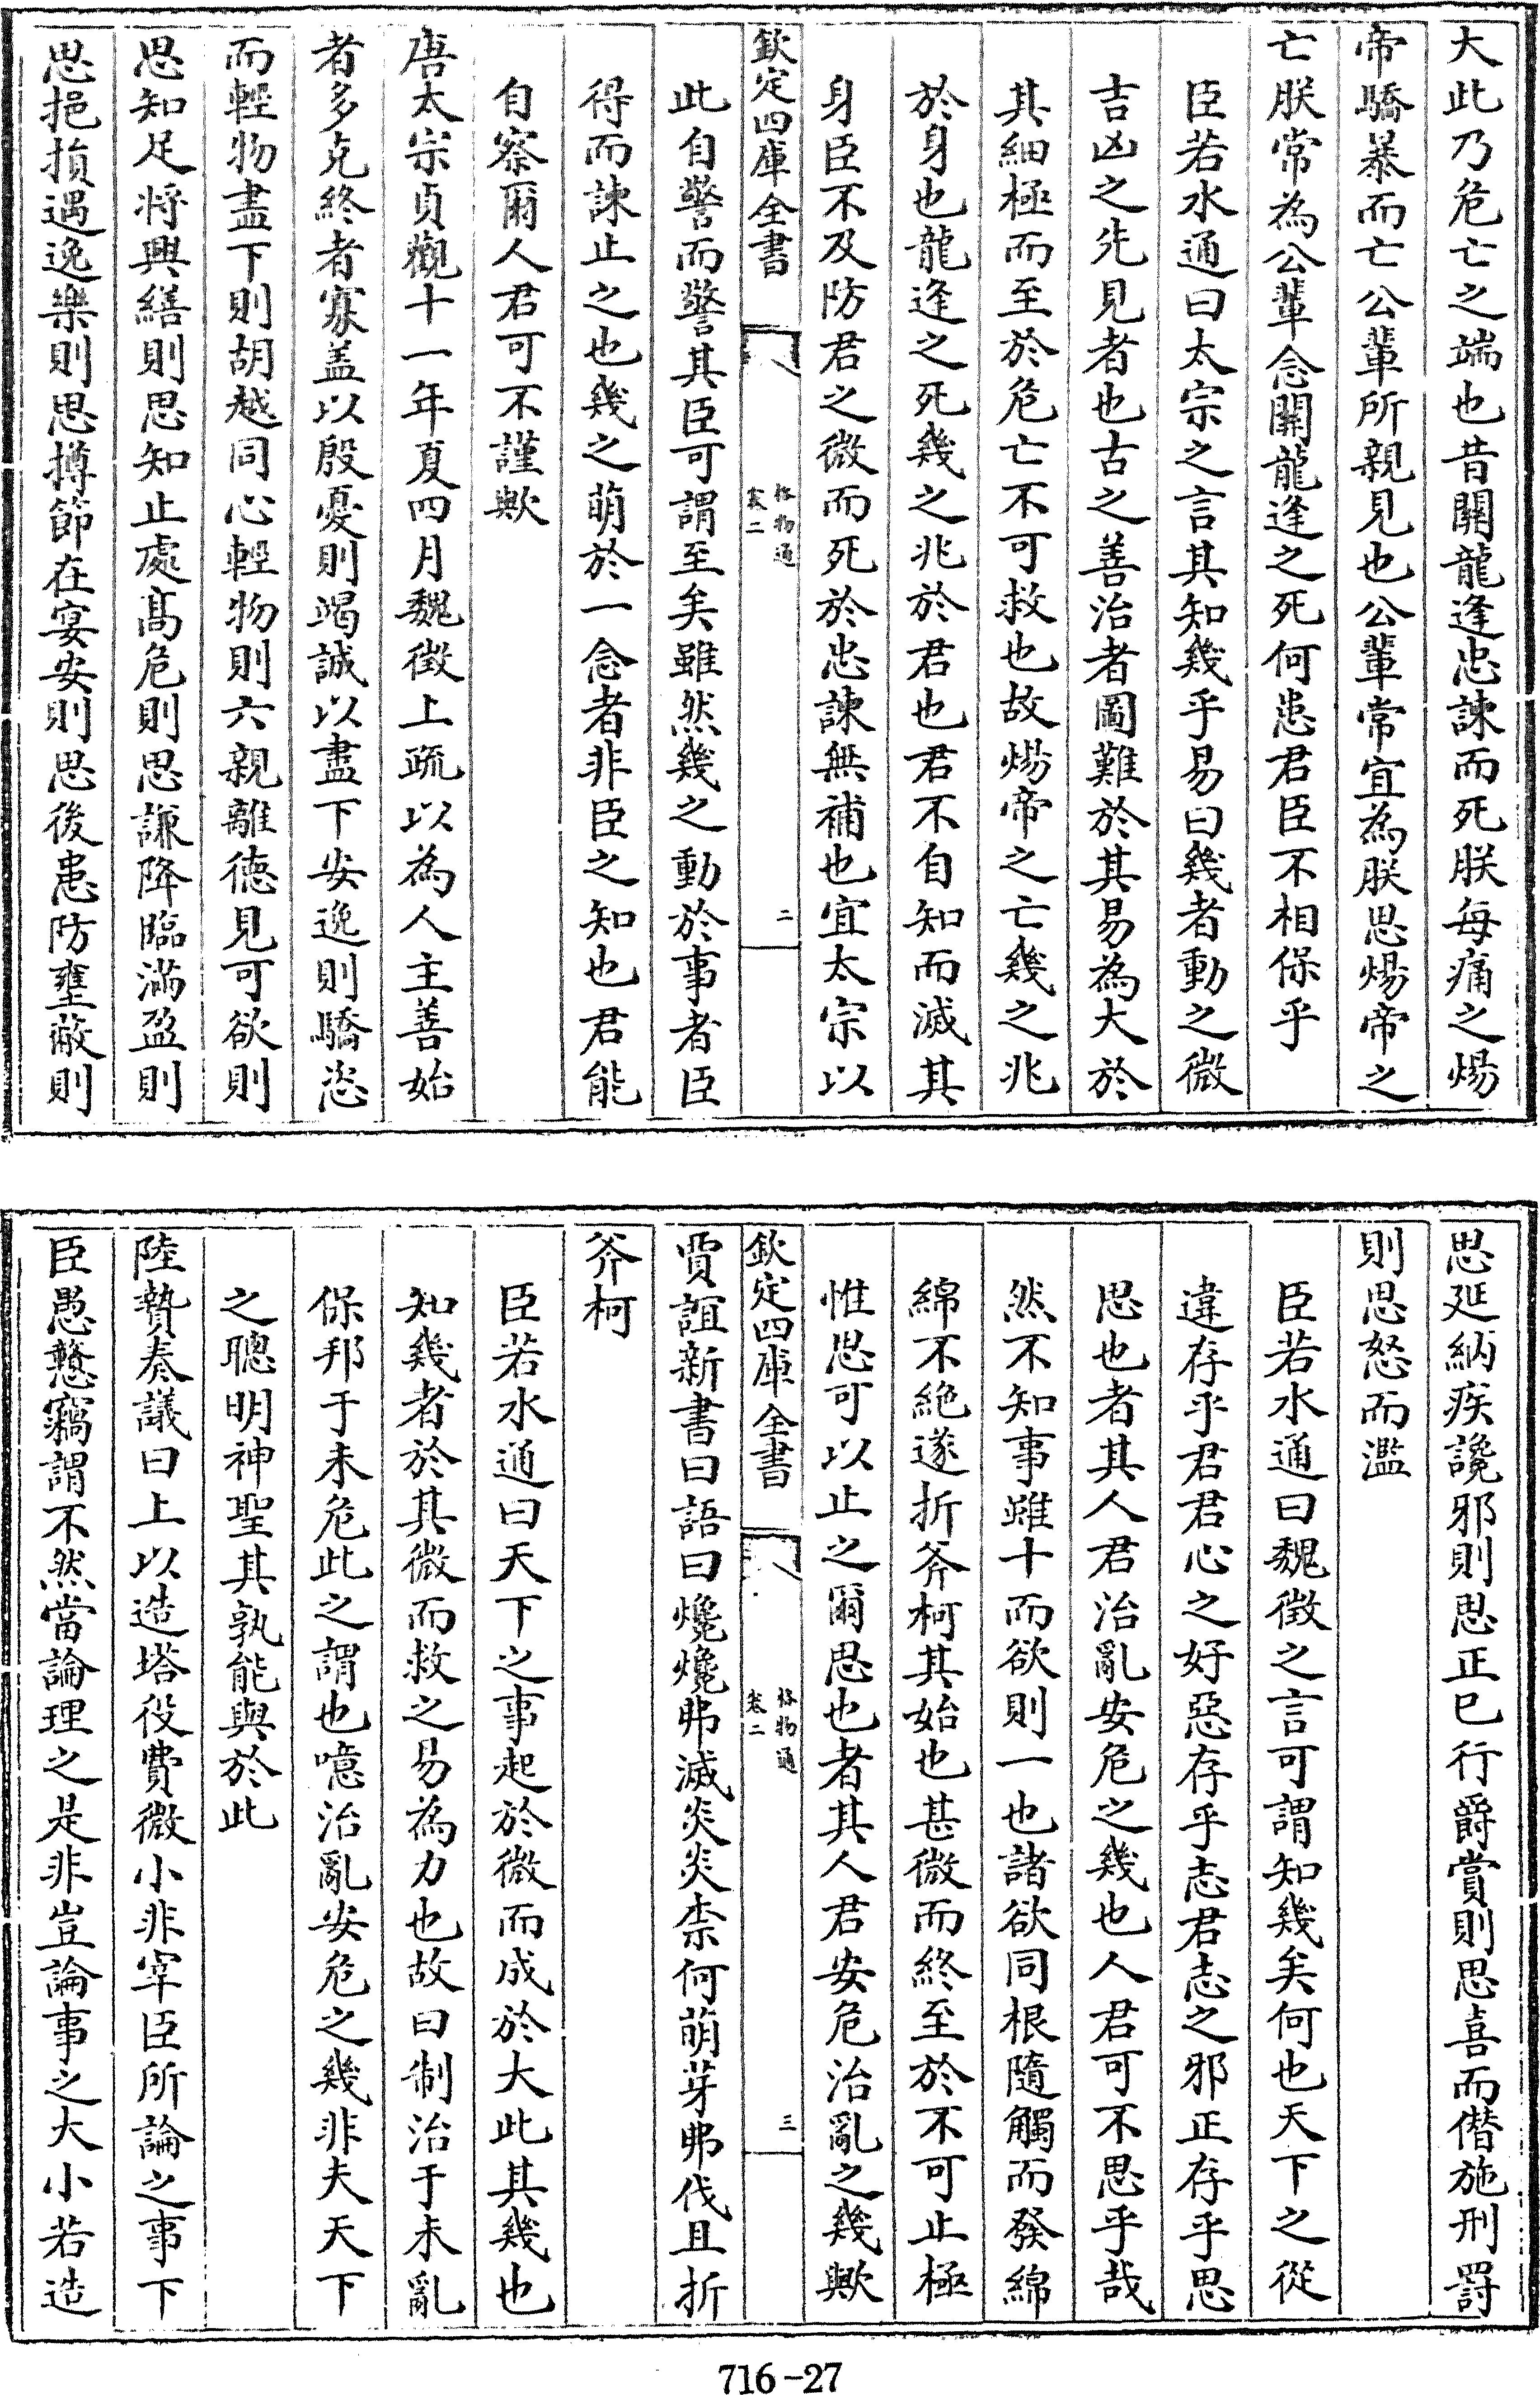 大此乃危亡之端也昔關龍逢忠諫而死朕每痛之煬
帝驕暴而亡公輩所親見也公輩常宜為朕思煬帝之
亡朕常為公輩念關龍逢之死何患君臣不相保乎
臣若水通曰太宗之言其知幾乎易曰幾者動之微
吉凶之先見者也古之善治者圖難於其易為大於
其細極而至於危亡不可救也故煬帝之亡幾之兆
於身也龍逢之死幾之兆於君也君不自知而滅其
身臣不及防君之微而死於忠諫無補也宜太宗以
欽定四庫全書
格物通
卷二
二
此自警而警其臣可謂至矣雖然幾之動於事者臣
得而諫止之也幾之萌於一念者非臣之知也君能
自察爾人君可不謹歟
唐太宗貞觀十一年夏四月魏徴上疏以為人主善始
者多克終者寡盖以殷憂則竭誠以盡下安逸則驕恣
而輕物盡下則胡越同心輕物則六親離徳見可欲則
思知足將興繕則思知止處髙危則思謙降臨滿盈則
思挹損遇逸樂則思撙節在宴安則思後患防壅蔽則
思延納疾讒邪則思正已行爵賞則思喜而僭施刑罰
則思怒而濫
臣若水通曰魏徴之言可謂知幾矣何也天下之從
違存乎君君心之好惡存乎志君志之邪正存乎思
思也者其人君治亂安危之幾也人君可不思乎哉
然不知事雖十而欲則一也諸欲同根隨觸而發綿
綿不絶遂折斧柯其始也甚微而終至於不可止極
惟思可以止之爾思也者其人君安危治亂之幾歟
欽定四庫全書
格物通
卷二
三
賈誼新書曰語曰爞爞弗滅炎炎柰何萌芽弗伐且折
斧柯
臣若水通曰天下之事起於微而成於大此其幾也
知幾者於其微而救之易為力也故曰制治于未亂
保邦于未危此之謂也噫治亂安危之幾非夫天下
之聰明神聖其孰能與於此
陸贄奏議曰上以造塔役費微小非宰臣所論之事下
臣愚戇竊謂不然當論理之是非豈論事之大小若造
716-27